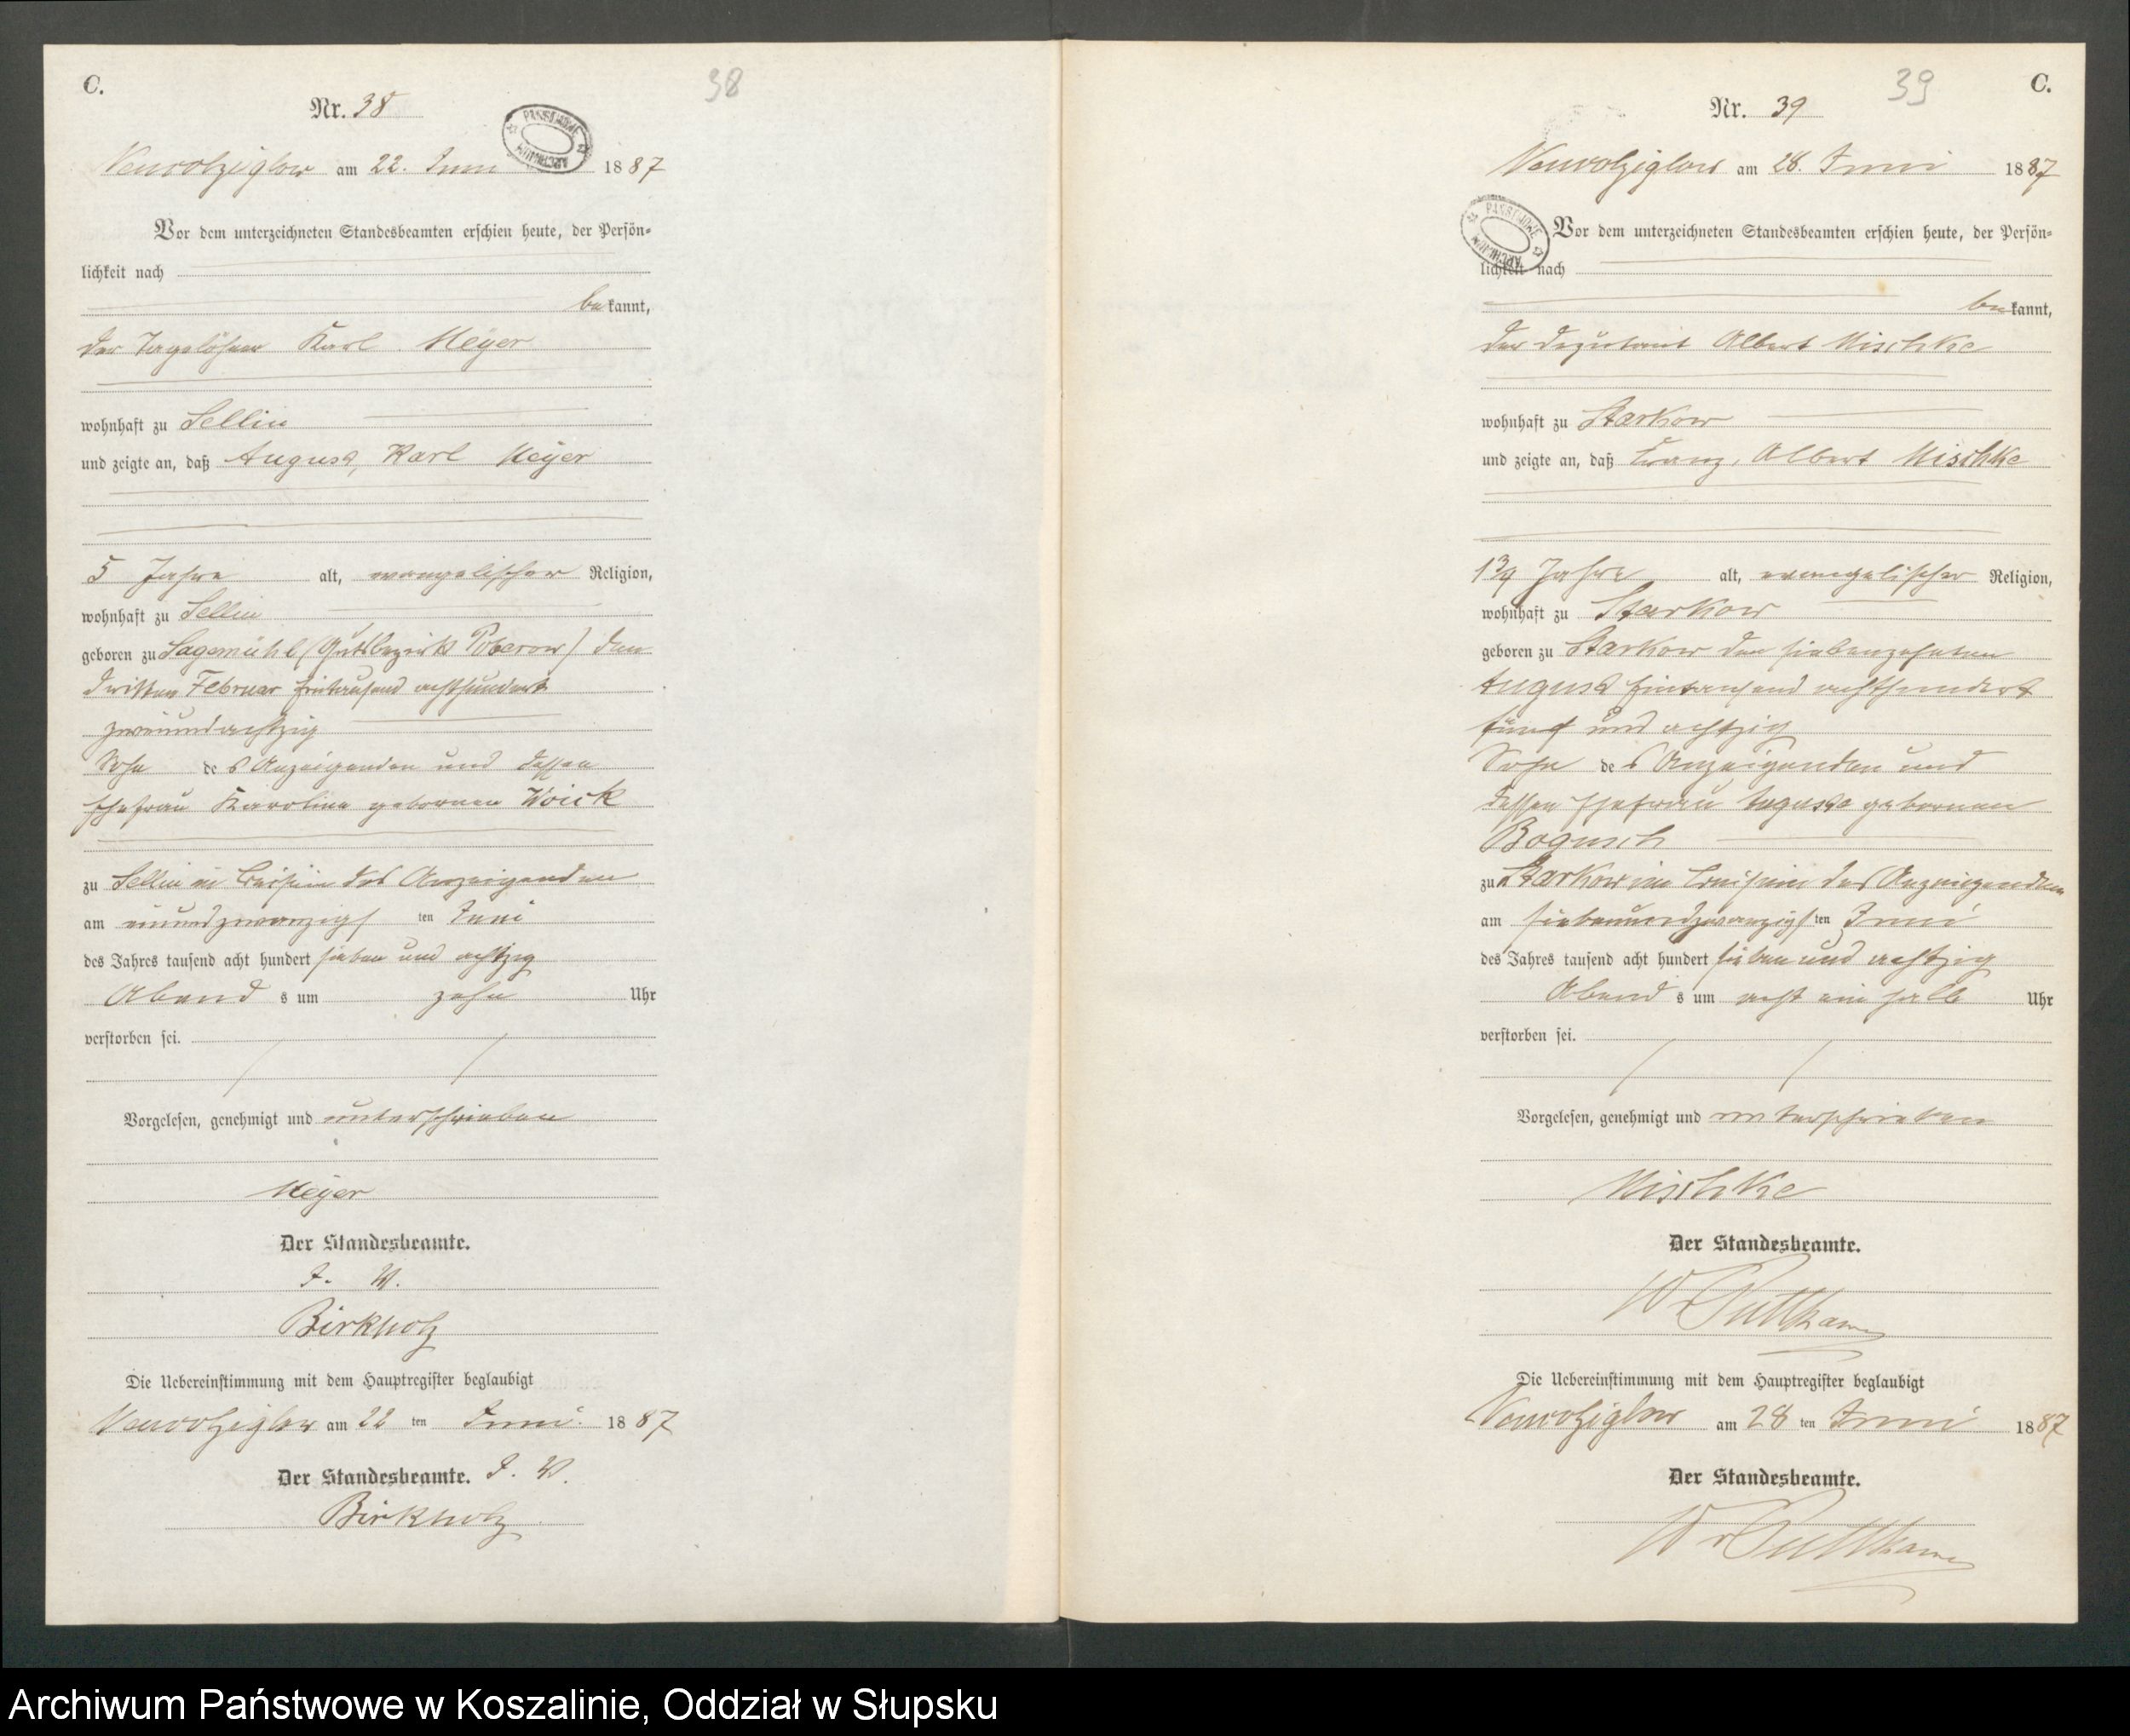 C.
38
Nr. 38
PAŃSTWOWE ARCHIWUM
Neuwolziglow am 22. Juni 1887
Vor dem unterzeichneten Standesbeamten erschien heute, der Persön-
lichkeit nach
bekannt,
der Tagelöhner Karl Meyer
wohnhaft zu Sellin
und zeigte an, daß August, Karl Meyer
5 Jahre alt, evangelischer Religion,
wohnhaft zu Sellin
geboren zu Sagemühl (Gutsbezirk Poberow) den
dritten Februar Eintausend achthundert
zweiundachtzig
Sohn des Anzeigenden und dessen
Ehefrau Karoline geborenen Woick
zu Sellin in Beisein des Anzeigenden
am einundzwanzigsten Juni
des Jahres tausend acht hundert sieben und achtzig
Abends um zehn Uhr
verstorben sei.
Vorgelesen, genehmigt und unterschrieben
Meyer
Der Standesbeamte.
J. V.
Birkholz
Die Uebereinstimmung mit dem Hauptregister beglaubigt
Neuwolziglow am 22ten Juni. 1887
Der Standesbeamte. J. V.
Birkholz
39
C.
Nr. 39
Neuwolziglow am 28. Juni 1887
PAŃSTWOWE ARCHIWUM
Vor dem unterzeichneten Standesbeamten erschien heute, der Persön-
lichkeit nach
bekannt,
der Deputant Albert Mischke
wohnhaft zu Starkow
und zeigte an, daß Franz, Albert Mischke
1¾ Jahre alt, evangelischer Religion,
wohnhaft zu Starkow
geboren zu Starkow den siebenzehnten
August Eintausend achthundert
fünf und achtzig
Sohn des Anzeigenden und
dessen Ehefrau Auguste geborenen
Bogusch
zu Starkow im Beisein des Anzeigenden
am siebenundzwanzigsten Juni
des Jahres tausend acht hundert sieben und achtzig
Abends um acht ein halb Uhr
verstorben sei.
Vorgelesen, genehmigt und unterschrieben
Mischke
Der Standesbeamte.
W v Puttkamer
Die Uebereinstimmung mit dem Hauptregister beglaubigt
Neuwolziglow am 28ten Juni 1887
Der Standesbeamte.
W v Puttkamer
Archiwum Państwowe w Koszalinie, Oddział w Słupsku